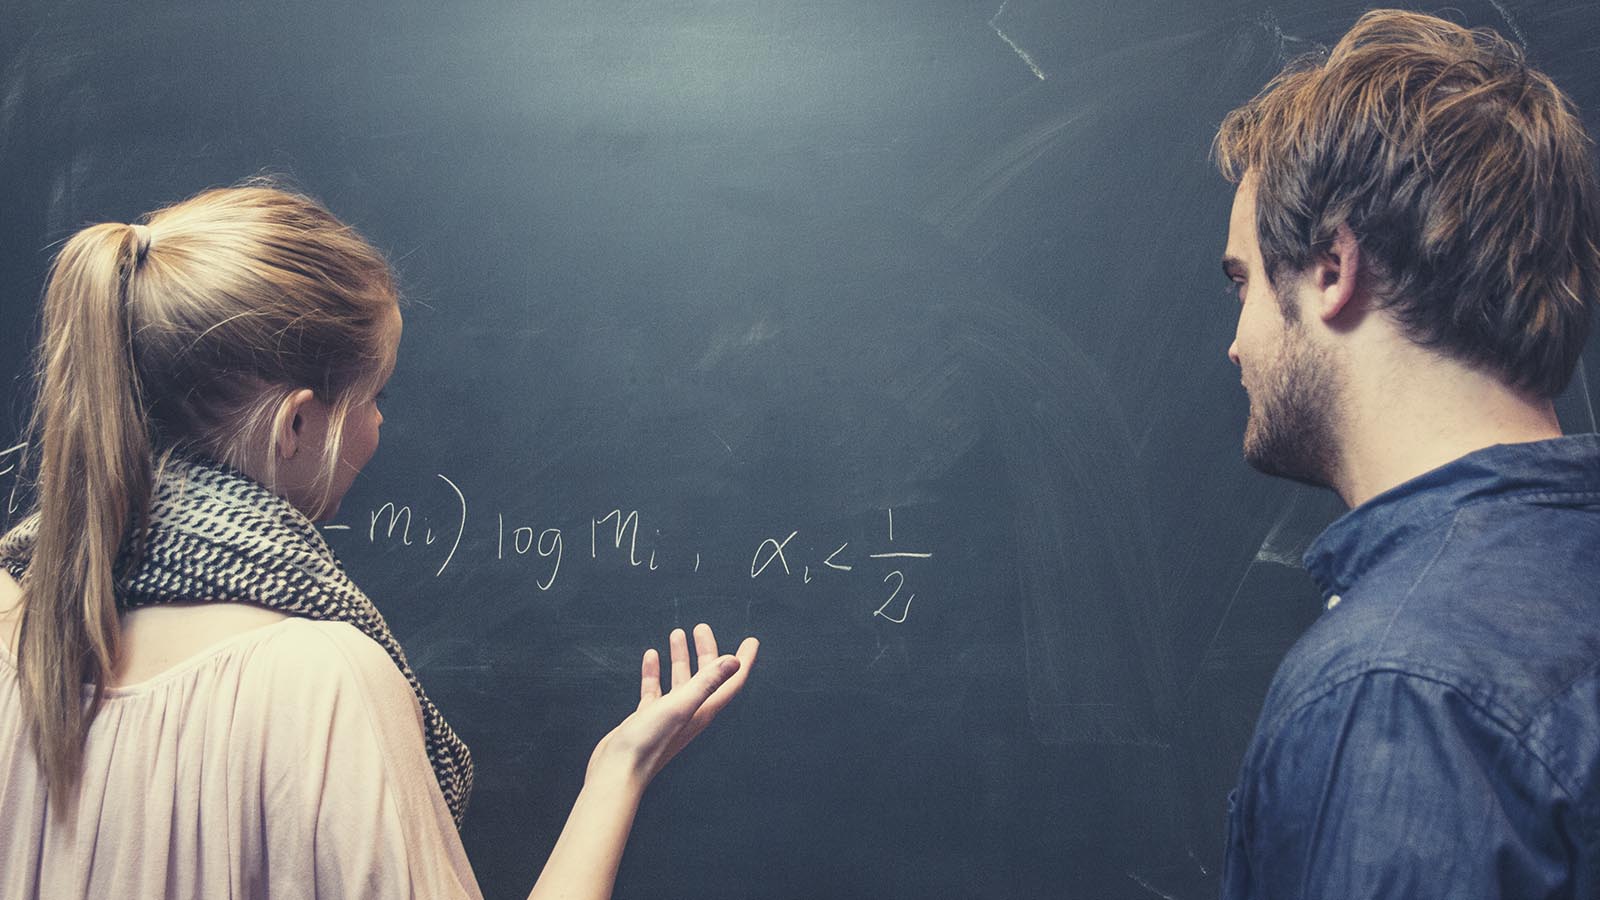 - m_i) log m_i , α_i < 1/2